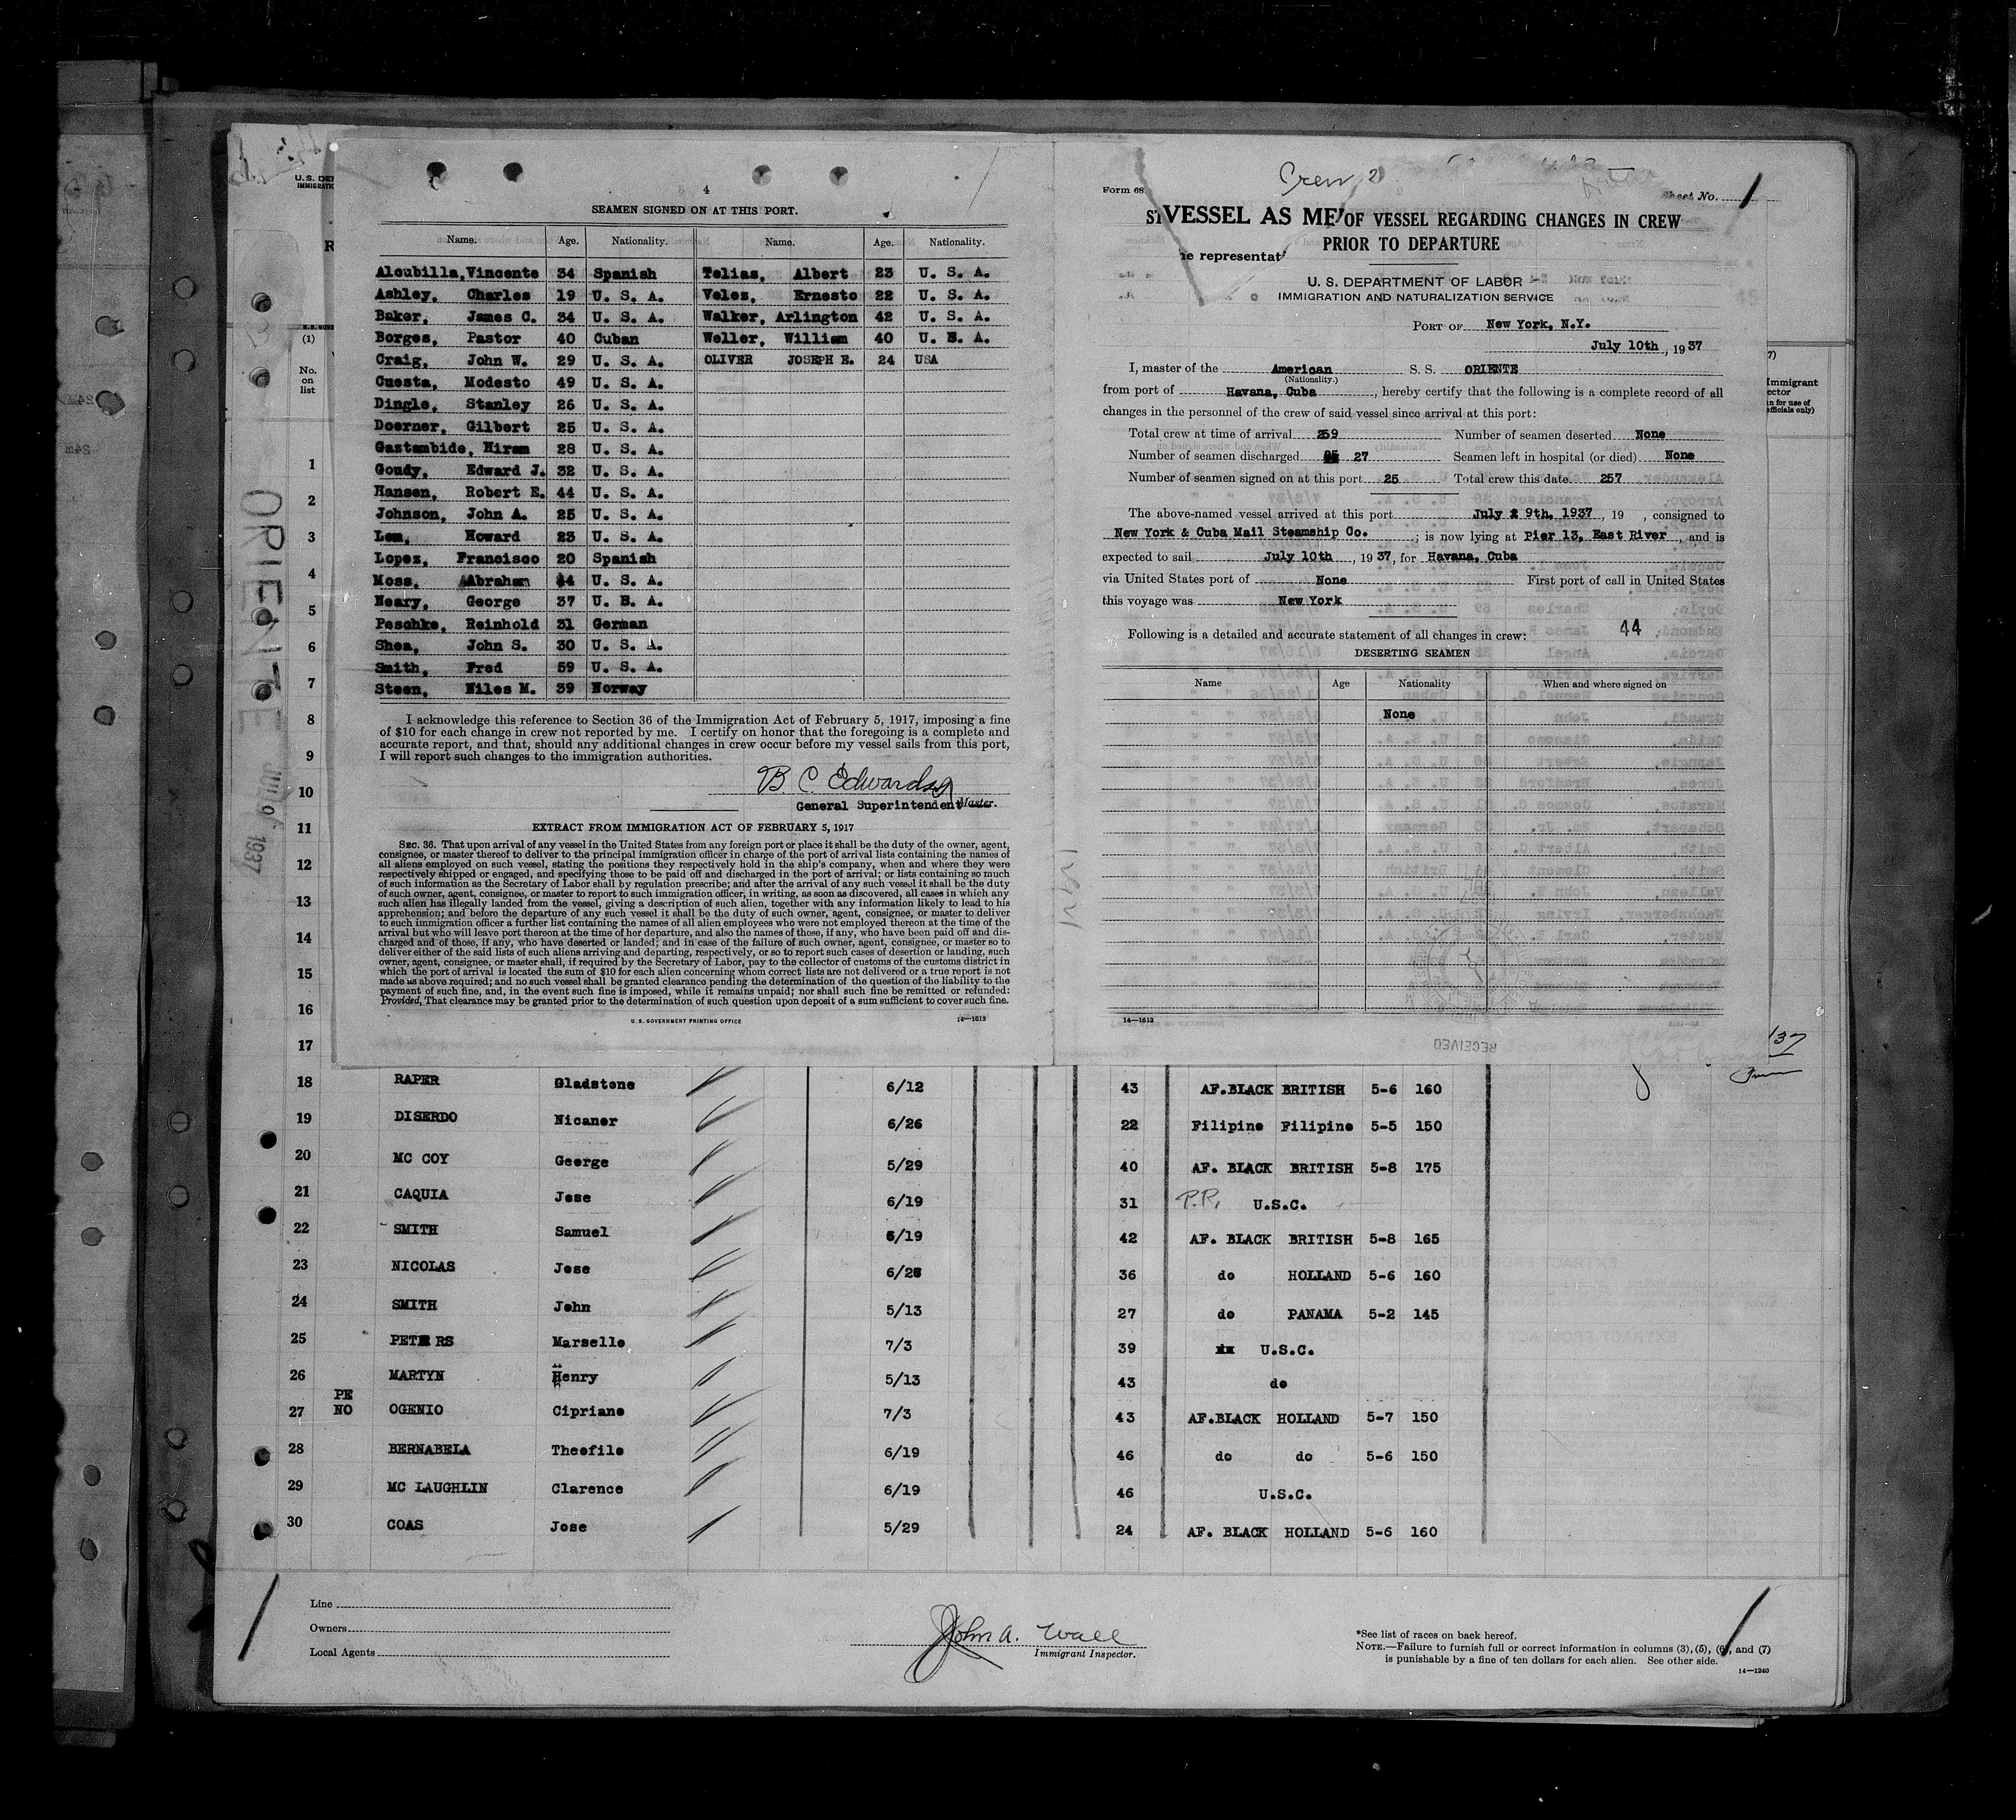 4
SEAMEN SIGNED ON AT THIS PORT.
Name. Age. Nationality. Name. Age. Nationality.
Alcubilla, Vincente 34 Spanish Telias, Albert 23 U. S. A.
Ashley, Charles 19 U. S. A. Velez, Ernesto 22 U. S. A.
Baker, James C. 34 U. S. A. Walker, Arlington 42 U. S. A.
Borges, Pastor 40 Cuban Weller, William 40 U. S. A.
Craig, John W. 29 U. S. A. OLIVER JOSEPH E. 24 USA
Cuesta, Modesto 49 U. S. A.
Dingle, Stanley 26 U. S. A.
Doerner, Gilbert 25 U. S. A.
Gaztambide, Hiram 28 U. S. A.
Goudy, Edward J. 32 U. S. A.
Hansen, Robert E. 44 U. S. A.
Johnson, John A. 25 U. S. A.
Lem, Howard 23 U. S. A.
Lopez, Francisco 20 Spanish
Moss, Abraham 44 U. S. A.
Neary, George 37 U. S. A.
Peschke, Reinhold 31 German
Shea, John S. 30 U. S. A.
Smith, Fred 59 U. S. A.
Steen, Niles M. 39 Norway
I acknowledge this reference to Section 36 of the Immigration Act of February 5, 1917, imposing a fine
of $10 for each change in crew not reported by me. I certify on honor that the foregoing is a complete and
accurate report, and that, should any additional changes in crew occur before my vessel sails from this port,
I will report such changes to the immigration authorities.
B. C. Edwards
General Superintendent Master.
EXTRACT FROM IMMIGRATION ACT OF FEBRUARY 5, 1917
SEC. 36. That upon arrival of any vessel in the United States from any foreign port or place it shall be the duty of the owner, agent,
consignee, or master thereof to deliver to the principal immigration officer in charge of the port of arrival lists containing the names of
all aliens employed on such vessel, stating the positions they respectively hold in the ship's company, when and where they were
respectively shipped or engaged, and specifying those to be paid off and discharged in the port of arrival; or lists containing so much
of such information as the Secretary of Labor shall by regulation prescribe; and after the arrival of any such vessel it shall be the duty
of such owner, agent, consignee, or master to report to such immigration officer, in writing, as soon as discovered, all cases in which any
such alien has illegally landed from the vessel, giving a description of such alien, together with any information likely to lead to his
apprehension; and before the departure of any such vessel it shall be the duty of such owner, agent, consignee, or master to deliver
to such immigration officer a further list containing the names of all alien employees who were not employed thereon at the time of the
arrival but who will leave port thereon at the time of her departure, and also the names of those, if any, who have been paid off and dis-
charged and of those, if any, who have deserted or landed; and in case of the failure of such owner, agent, consignee, or master so to
deliver either of the said lists of such aliens arriving and departing, respectively, or so to report such cases of desertion or landing, such
owner, agent, consignee, or master shall, if required by the Secretary of Labor, pay to the collector of customs of the customs district in
which the port of arrival is located the sum of $10 for each alien concerning whom correct lists are not delivered or a true report is not
made as above required; and no such vessel shall be granted clearance pending the determination of the question of the liability to the
payment of such fine, and, in the event such fine is imposed, while it remains unpaid; nor shall such fine be remitted or refunded:
Provided, That clearance may be granted prior to the determination of such question upon deposit of a sum sufficient to cover such fine.
U. S. GOVERNMENT PRINTING OFFICE 14—1613
Form 68
Crew 2
Sheet No. 1
ST VESSEL AS ME OF VESSEL REGARDING CHANGES IN CREW
PRIOR TO DEPARTURE
he representat
U. S. DEPARTMENT OF LABOR
IMMIGRATION AND NATURALIZATION SERVICE
PORT OF New York, N.Y.
July 10th, 1937
I, master of the American S. S. ORIENTE
(Nationality.)
from port of Havana, Cuba, hereby certify that the following is a complete record of all
changes in the personnel of the crew of said vessel since arrival at this port:
Total crew at time of arrival 259 Number of seamen deserted None
Number of seamen discharged 27 Seamen left in hospital (or died) None
Number of seamen signed on at this port 25 Total crew this date 257
The above-named vessel arrived at this port July 9th, 1937, 19 , consigned to
New York & Cuba Mail Steamship Co. ; is now lying at Pier 13, East River, and is
expected to sail July 10th, 1937, for Havana, Cuba
via United States port of None First port of call in United States
this voyage was New York
Following is a detailed and accurate statement of all changes in crew: 44
DESERTING SEAMEN
Name Age Nationality When and where signed on
None
14—1613
RECEIVED
U. S. DEP
IMMIGRATIO
R
(1)
No.
on
list
ORIENTE
JUL 9 1937
7)
Immigrant
ector
n for use of
officials only)
1
2
3
4
5
6
7
8
9
10
11
12
13
14
15
16
17
137
18 RAPER Gladstone 6/12 43 AF.BLACK BRITISH 5-6 160
19 DISERDO Nicanor 6/26 22 Filipino Filipino 5-5 150
20 MC COY George 5/29 40 AF. BLACK BRITISH 5-8 175
21 CAQUIA Jose 6/19 31 P.R. U.S.C.
22 SMITH Samuel 6/19 42 AF. BLACK BRITISH 5-8 165
23 NICOLAS Jose 6/26 36 do HOLLAND 5-6 160
24 SMITH John 5/13 27 do PANAMA 5-2 145
25 PETERS Marselle 7/3 39 U.S.C.
26 MARTYN Henry 5/13 43 do
27 PE NO OGENIO Cipriano 7/3 43 AF.BLACK HOLLAND 5-7 150
28 BERNABELA Theofilo 6/19 46 do do 5-6 150
29 MC LAUGHLIN Clarence 6/19 46 U.S.C.
30 COAS Jose 5/29 24 AF. BLACK HOLLAND 5-6 160
Line
Owners
Local Agents
John A. Wall
Immigrant Inspector.
*See list of races on back hereof.
NOTE.—Failure to furnish full or correct information in columns (3), (5), (6), and (7)
is punishable by a fine of ten dollars for each alien. See other side.
14—1240